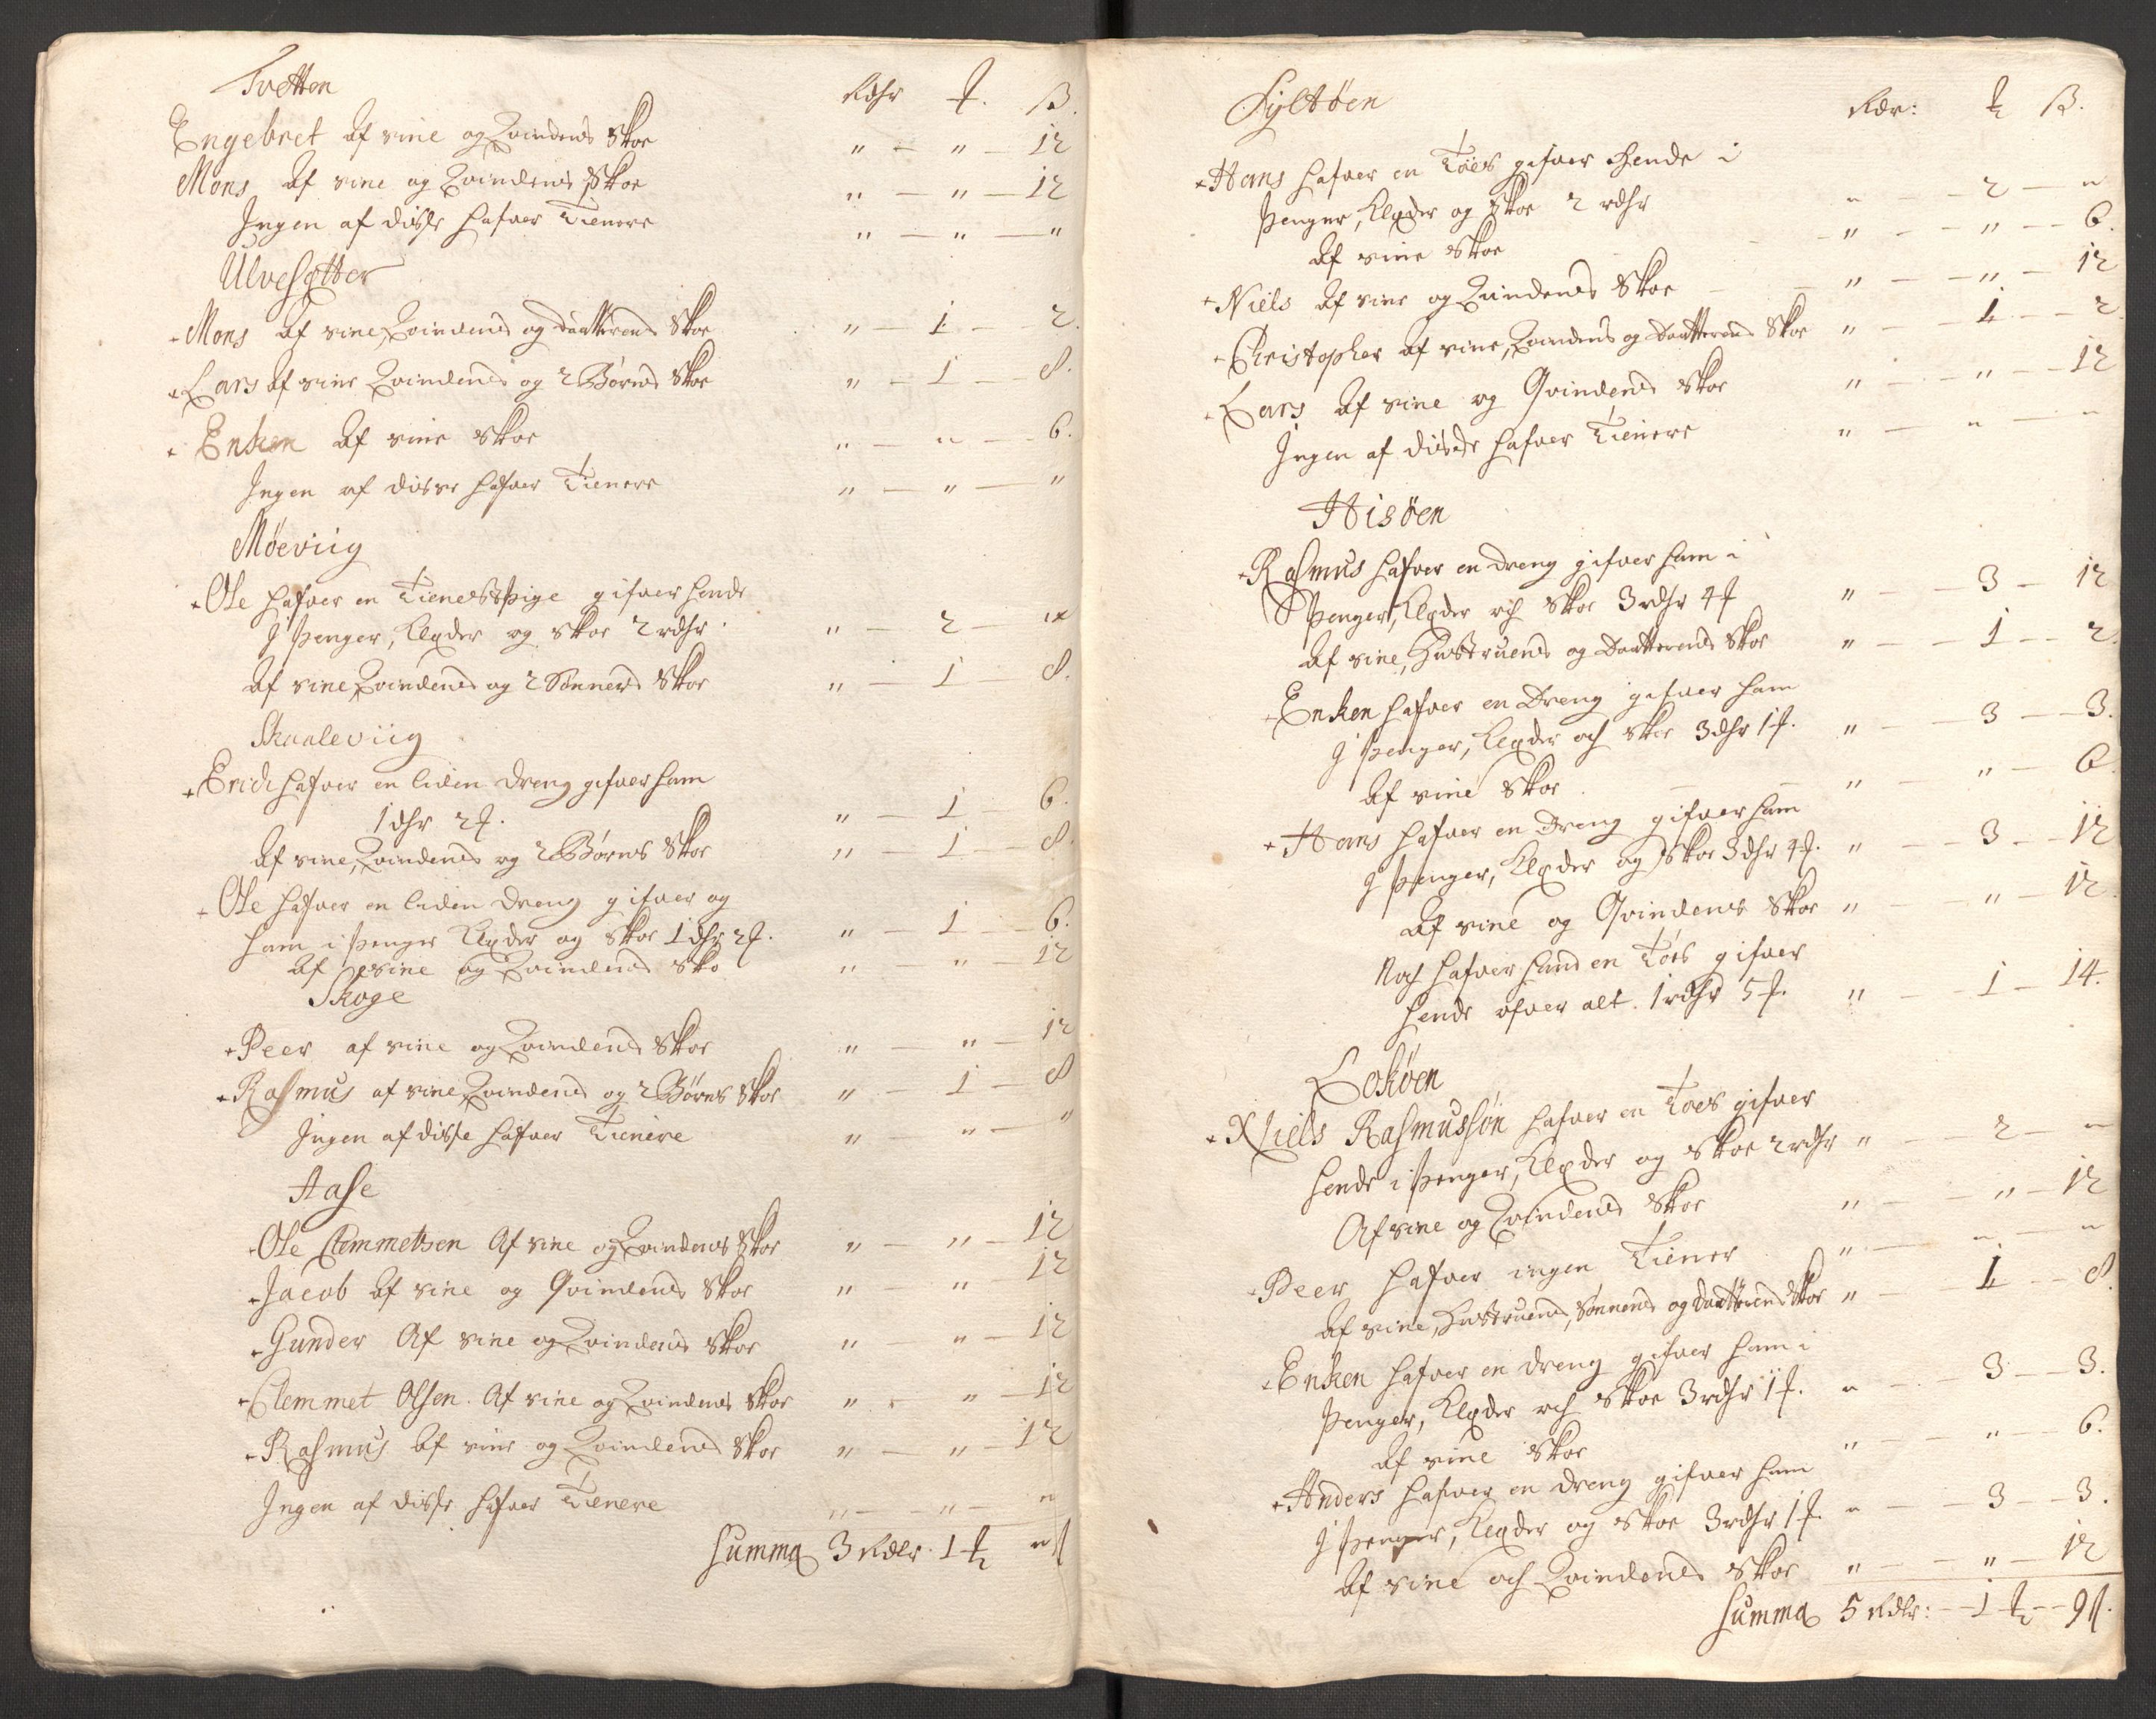 Tvetten Rdhr ƒ. ß.
Engebret af sine og Qvindens Skoe " — " — 12
Mons af sine og Qvindens Skoe " — " — 12
Ingen af disse hafver Tienere " — " — "
Ulvesætter
Mons af sine, Qvindens og daatterens Skoe " — 1 — 2.
Lars af sine Qvindens og 2 Børns Skoe " — 1 — 8.
Enken af sine Skoe " — " — 6.
Ingen af disse hafver Tienere " — " — "
Møeviig
Ole hafver en Tieneste Pige gifver hende
J Penger, Klæder og skoe 2 rdhr " — 2 — "
Af sine, Qvindens og 2 Sønners Skoe " — 1 — 8.
Skaaleviig
Erich hafver en liden dreng gifver ham
1 dhr 2 ƒ. " — 1 — 6.
Af sine, Qvindens og 2 Børns Skoe " — 1 — 8.
Ole hafver en liden dreng gifver og
ham i Penger Klæder og Skoe 1 dhr 2 ƒ. " — 1 — 6.
Af sine og Qvindens sko " — " — 12
Skoge
Peer af sine og Qvindens Skoe " — " — 12
Rasmus af sine, Qvindens og 2 Børns Skoe " — 1 — 8
Ingen af disse hafver Tienere " — " — "
Aase
Ole Clemmetsen Af sine og Qvindens Skoe " — " — 12
Jacob Af sine og Qvindens Skoe " — " — 12
Gunder Af sine og Qvindens Skoe " — " — 12
Clemmet Olsen. Af sine og Qvindens Skoe " — " — 12
Rasmus Af sine og Qvindens Skoe " — " — 12
Ingen af disse hafver Tienere " — " — "
Summa 3 Rdlr. 1 ƒ " ß
Syltøen Rdr: ƒ ß.
Hans hafver en Tøes gifver hende i
Penger, Klæder og Skoe 2 rdhr " — 2 — "
Af sine Skoe " — " — 6.
Niels Af sine og Qvindens Skoe " — " — 12
Christopher af sine, Qvindens og Daatterens Skoe " — 1 — 2
Lars Af sine og Qvindens Skoe " — " — 12
Ingen af disse hafver Tienere " — " — "
Hisøen
Rasmus hafver en dreng gifver ham i
Penger, Klæder och Skoe 3 rdhr 4 ƒ " — 3 — 12
Af sine, Hustruens og Daatterens Skoe " — 1 — 2.
Enken hafver en Dreng gifver ham
J Penger, Klæder och Skoe 3 dhr 1 ƒ. " — 3 — 3.
Af sine Skoe " — " — 6
Hans hafver en Dreng gifver ham
J Penger, Klæder og Skoe 3 dhr 4 ƒ. " — 3 — 12
Af sine og Qvindens Skoe " — " — 12
Noch hafver hand en Tøes gifver
hende ofver alt. 1 rdhr 5 ƒ. " — 1 — 14.
Lokøen
Niels Rasmussøn hafver en Tøes gifver
hende i Penger, Klæder og Skoe 2 rdhr " — 2 — "
Af sine og Qvindens Skoe " — " — 12
Peer hafver ingen Tiener " — " — "
Af sine, Hustruens, Sønnens og Daatterens Skoe " — 1 — 8
Enken hafver en dreng gifver ham i
Penger, Klæder och Skoe 3 rdhr 1 ƒ. " — 3 — 3.
Af sine Skoe " — " — 6.
Anders hafver en dreng gifver ham
J Penger, Klæder og Skoe 3 rdhr 1 ƒ. " — 3 — 3.
Af sine och Qvindens Skoe " — " — 12
Summa 5 Rdlr: — 1 ƒ — 9 ß.